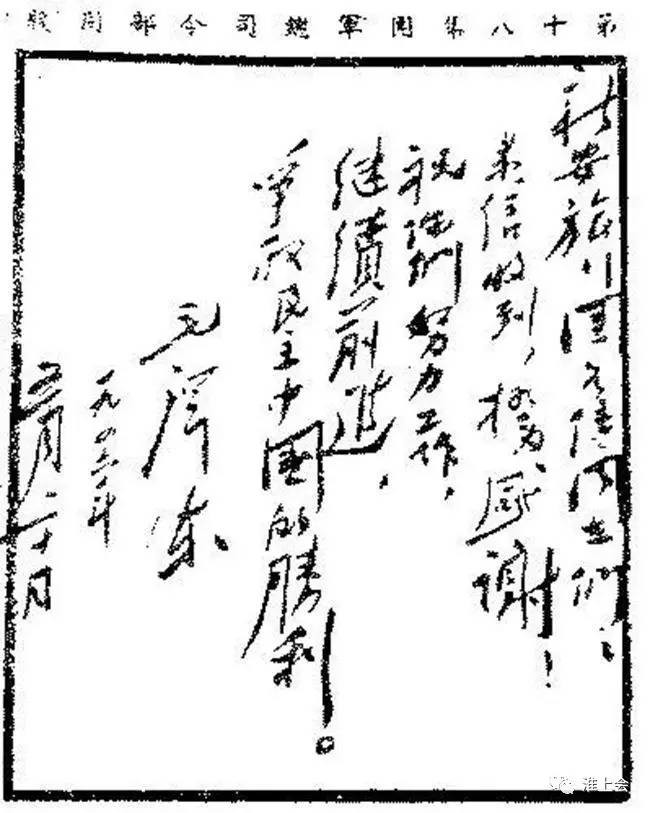 第十八集團軍總司令部用牋
新安旅行团各位同志们：
来信收到，极为感谢！
祝你们努力工作，
继續前進，
爭取民主中國的勝利。
毛澤东
一九四六年
五月二十日
淮上会